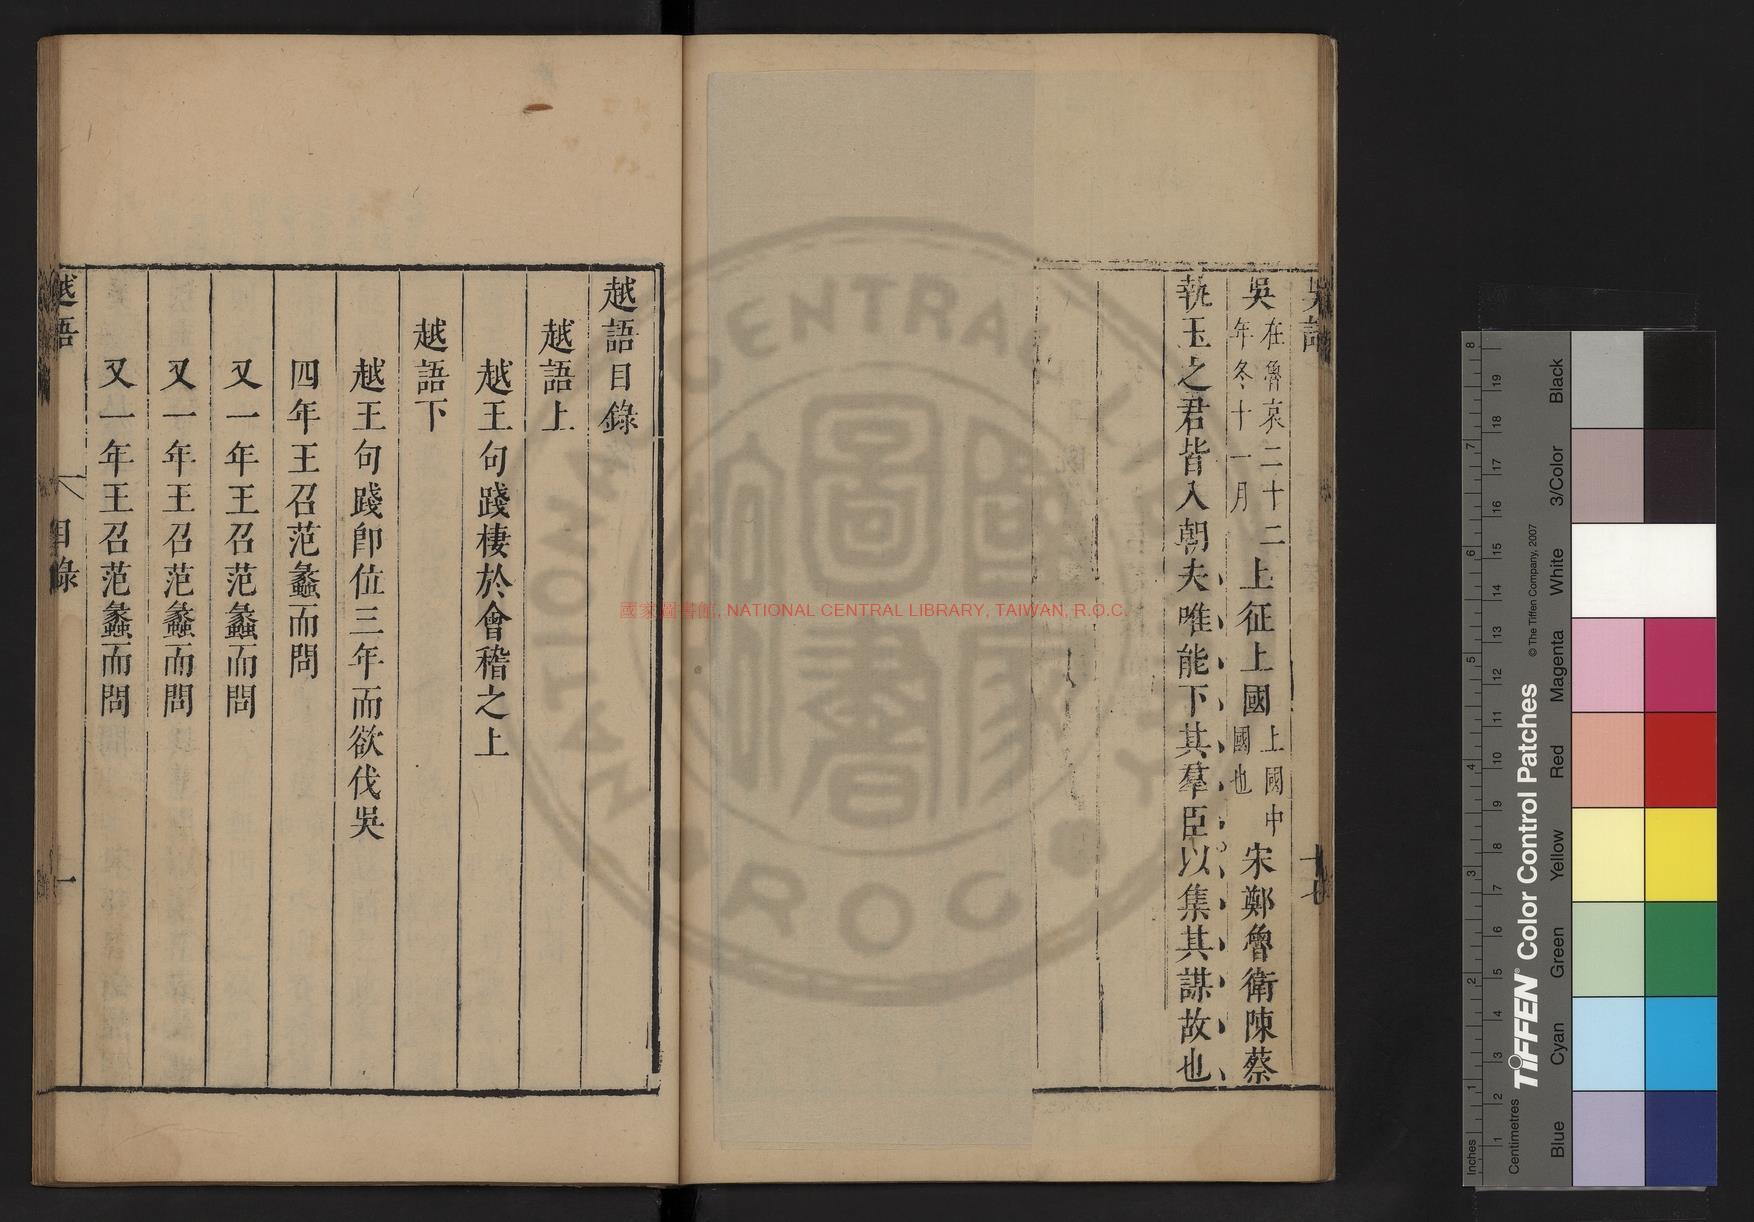 吳語
十七
吳在魯哀二十二年冬十一月上征上國上國中國也宋鄭魯衛陳蔡
執玉之君皆入朝夫唯能下其羣臣以集其謀故也
越語目錄
越語上
越王句踐棲於會稽之上
越語下
越王句踐卽位三年而欲伐吳
四年王召范蠡而問
又一年王召范蠡而問
又一年王召范蠡而問
又一年王召范蠡而問
越語
目錄
一
國家圖書館, NATIONAL CENTRAL LIBRARY, TAIWAN, R.O.C.
NATIONAL CENTRAL LIBRARY
R O C
國家圖書
Inches
1 2 3 4 5 6 7 8
Centimetres
1 2 3 4 5 6 7 8 9 10 11 12 13 14 15 16 17 18 19
TIFFEN® Color Control Patches
© The Tiffen Company, 2007
Blue
Cyan
Green
Yellow
Red
Magenta
White
3/Color
Black